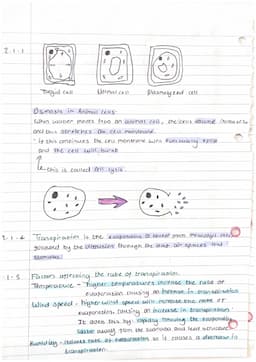 2.1.1
Turgid cell Normal cell Plasmolysed cell
Osmosis in Animal cells
When water moves into an animal cell, the cells volume increases
and this stretches the cell membrane.
If this continues the cell membrane will eventually
and the cell will burst.
this is called cell lysis.
2.1.4 Transpiration is the evaporation of water from mesophyll cells
followed by the diffusion through the leaf air spaces and
stomata.
1.3 Factors affecting the rate of transpiration
Temperature - higher temperatures increase the rate of
evaporation causing an increase in transpiration
Wind speed - higher wind speed will increase the rate of
evaporation causing an increase in transpiration.
It does this by rapidly moving the evaporated
water away from the stomata and leaf surface.
Humidity - reduces rate of evaporation so it causes a decrease in
transpiration.